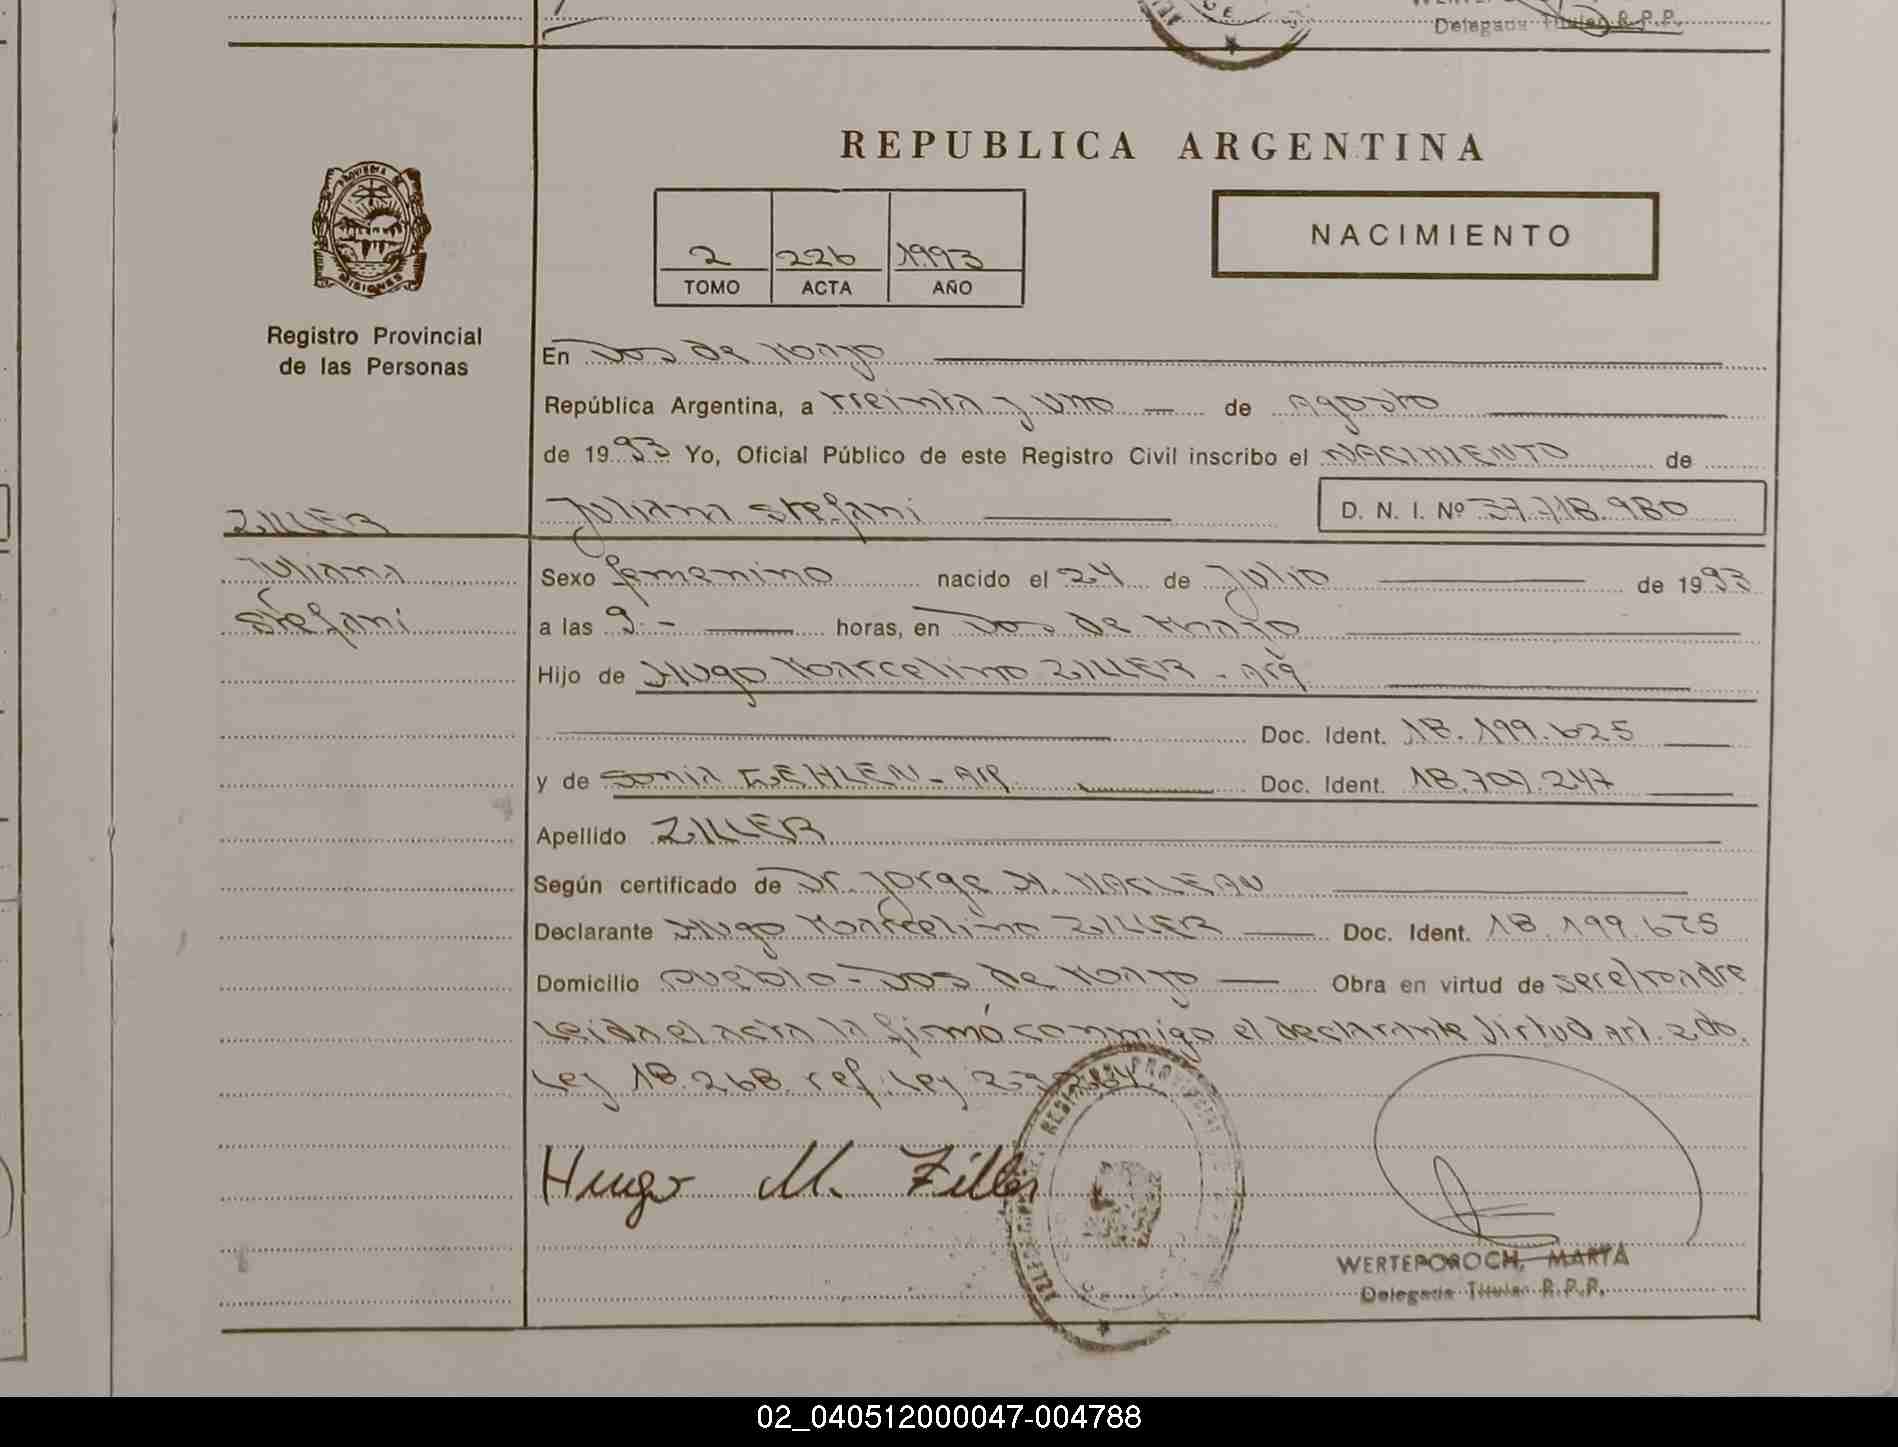 Delegada Titular R.P.P.
REPUBLICA ARGENTINA
NACIMIENTO
2 226 1993
TOMO ACTA AÑO
MISIONES
Registro Provincial
de las Personas
En Dos de Mayo
República Argentina, a treinta y uno — de Agosto
de 1993 Yo, Oficial Público de este Registro Civil inscribo el NACIMIENTO de
ZILLER
Juliana Stefani D. N. I. Nº 37.718.980
Juliana
Stefani
Sexo femenino nacido el 24 de Julio de 1993
a las 9.- horas, en Dos de Mayo
Hijo de Hugo Marcelino ZILLER - Arg
Doc. Ident. 18.199.625
y de Sonia GEHLEN - Arg. Doc. Ident. 18.707.247
Apellido ZILLER
Según certificado de Dr. Jorge H. MACLEAN
Declarante Hugo Marcelino ZILLER Doc. Ident. 18.199.625
Domicilio pueblo - Dos de Mayo Obra en virtud de ser el padre
Leida el acta la firmó conmigo el declarante Virtud Art. 2do.
Ley 18.268. ref. Ley
Hugo M. Ziller
REGISTRO PROVINCIAL DE
WERTEPOROCH, MARTA
Delegada Titular R.P.P.
02_040512000047-004788